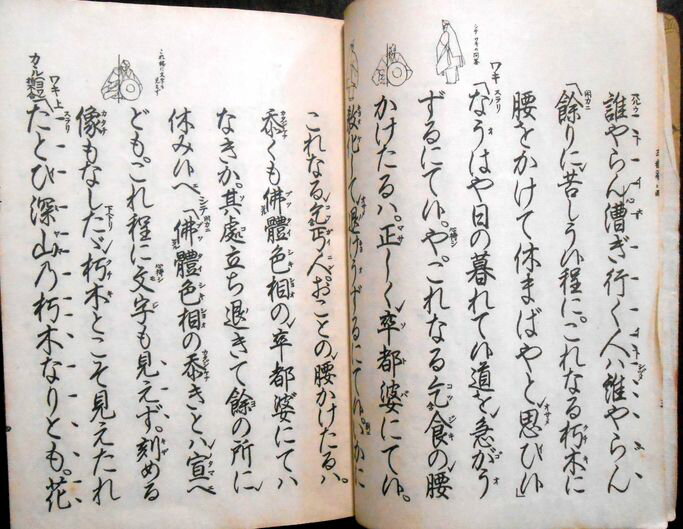 誰やらん漕ぎ行く人ハ誰やらん
「餘りに苦しう候程に。これなる朽木に
腰をかけて休まばやと思ひ候」
シテワキの問答
ワキ スラリ
「なうはや日の暮れて候道を急がう
ずるにて候。や。これなる乞食の腰
かけたるハ。正しく卒都婆にて候。
教化して退けうずるにて候いかに
これなる乞丐人。おことの腰かけたるハ。
忝くも佛體色相の卒都婆にてハ
なきか。其處立ち退きて餘の所に
休み候へ「佛體色相の忝きとハ宣へ
ども。これ程に文字も見えず。刻める
像もなしたゞ朽木とこそ見えたれ
ワキ上 スラリ
たとひ深山乃朽木なりとも。花